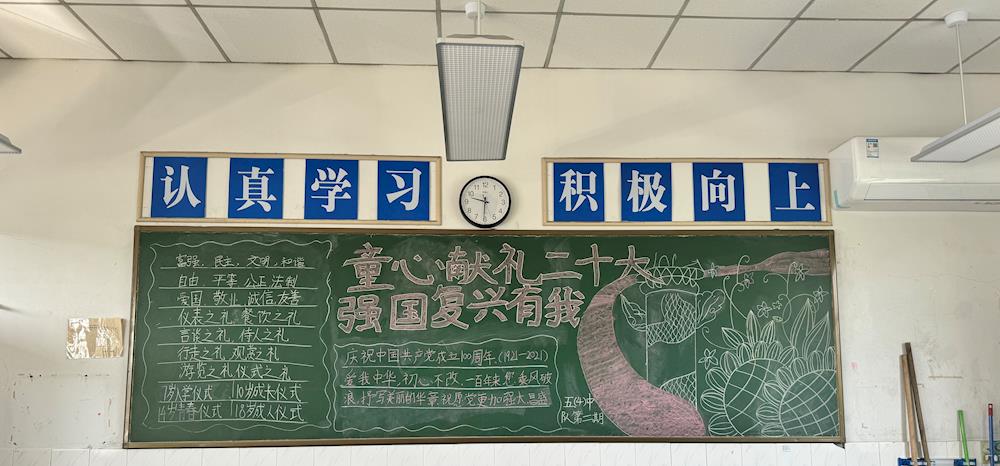 认真学习 积极向上
富强、民主、文明、和谐
自由 平等 公正 法制
爱国 敬业 诚信 友善
仪表之礼 餐饮之礼
言谈之礼 待人之礼
行走之礼 观赏之礼
游览之礼 仪式之礼
7岁入学仪式 10岁成长仪式
14岁青春仪式 18岁成人仪式
童心献礼二十大
强国复兴有我
庆祝中国共产党成立100周年(1921-2021)
爱我中华,初心不改,一百年来您乘风破
浪,抒写美丽的华章祝愿党更加强大昌盛
五(4)中
队第二期